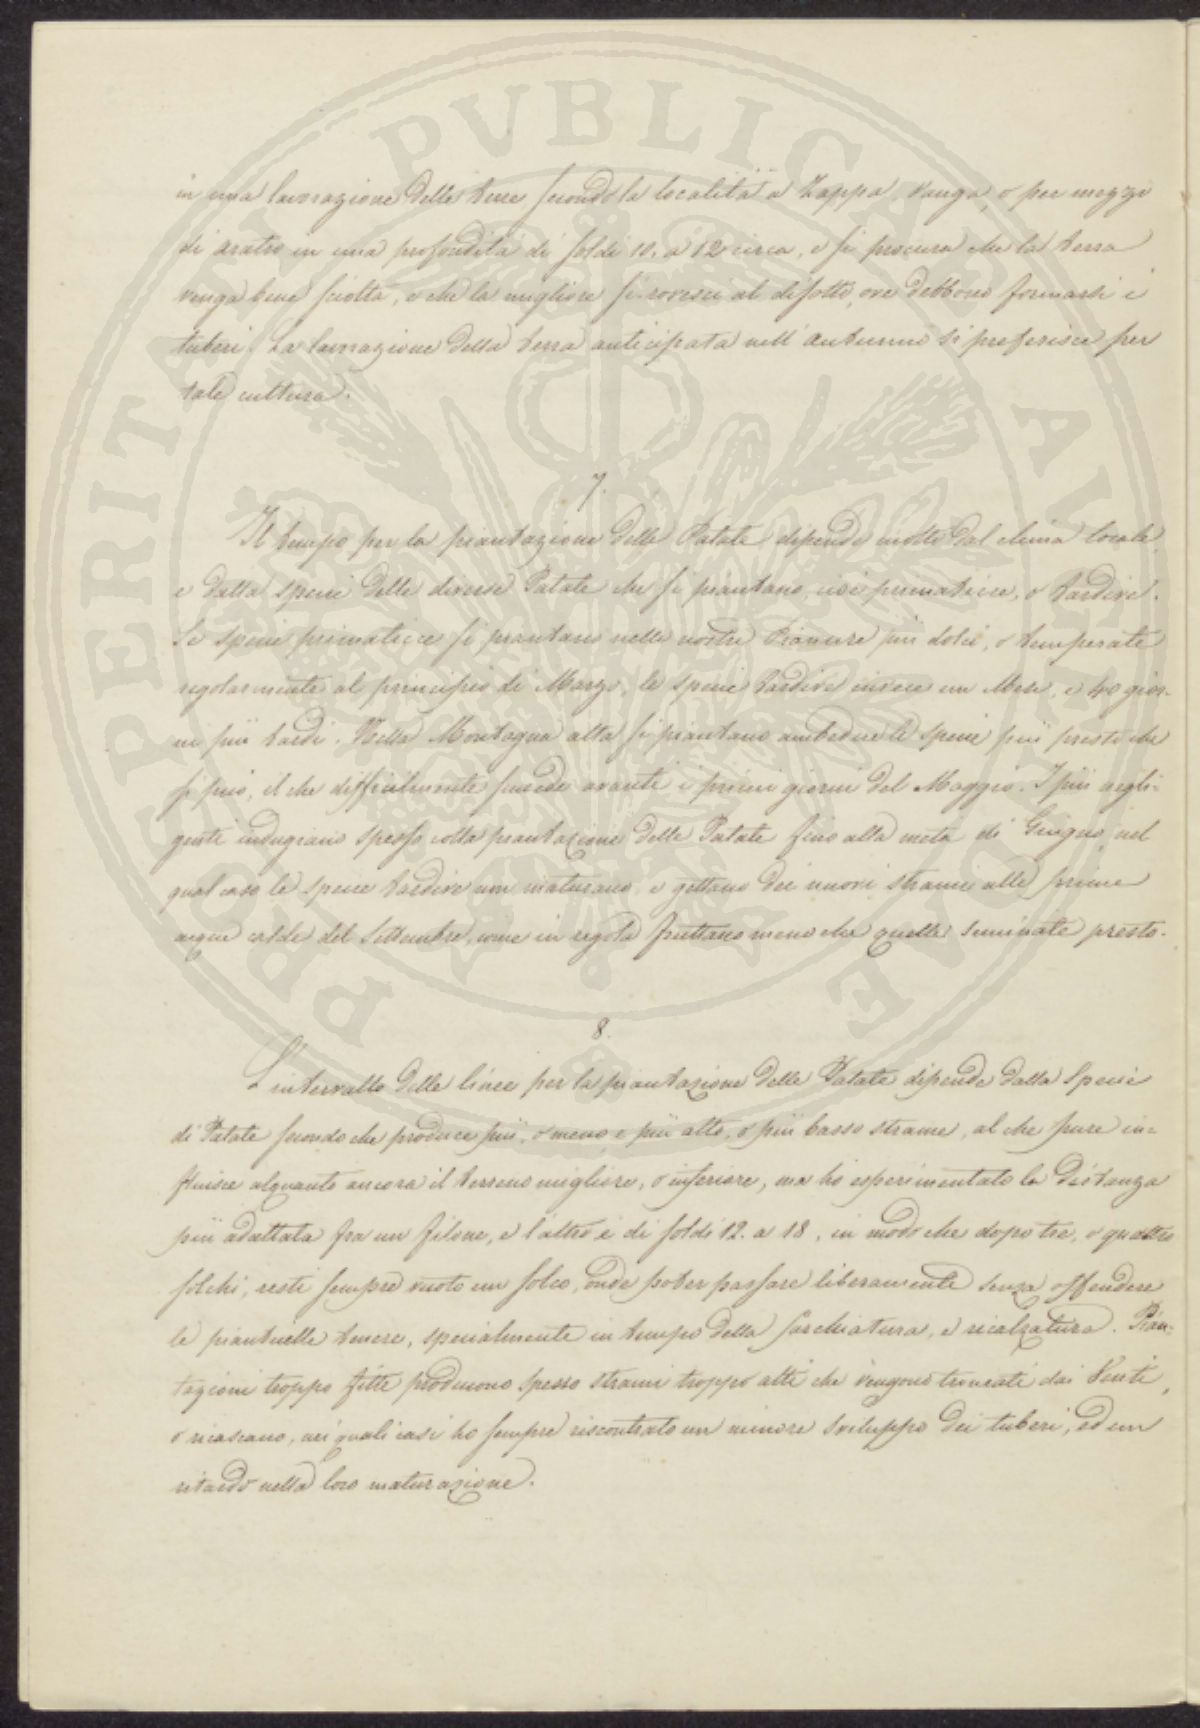 in una lavorazione delle terre secondo la località a Zappa, Vanga, o per mezzo
di aratro in una profondità di soldi 10. a 12 circa, e si procura che la terra
venga bene sciolta, e che la migliore si rovesci al disotto, ove debbono formarsi i
tuberi. La lavorazione della terra anticipata nell'Autunno si preferisce per
tale cultura.
7.
Il tempo per la piantazione delle Patate dipende molto dal clima locale
e dalla specie delle diverse Patate che si piantano, cioè primaticcie, o tardive.
Le specie primaticcie si piantano nelle nostre Pianure più dolci, o temperate
regolarmente al principio di Marzo, le specie tardive invece un Mese, e 40 gior-
ni più tardi. Nella Montagna alta si piantano ambedue le specie più presto che
si può, il che difficilmente succede avanti i primi giorni del Maggio. I più negli-
genti indugiano spesso colla piantazione delle Patate fino alla metà di Giugno, nel
qual caso le specie tardive non maturano, e gettano dei nuovi strami alle prime
acque calde del Settembre, come in regola fruttano meno che quelle seminate presto.
8.
L'intervallo delle linee per la piantazione delle Patate dipende dalla Specie
di Patate secondo che produce più, o meno, e più alto, o più basso strame, al che pure in=
fluisce alquanto ancora il terreno migliore, o inferiore, ma ho esperimentato la distanza
più adattata fra un filone, e l'altro è di soldi 12. a 18, in modo che dopo tre, o quattro
solchi, resti sempre vuoto un solco, onde poter passare liberamente senza offendere
le pianticelle tenere, specialmente in tempo della sarchiatura, e ricalzatura. Pian=
tazioni troppo fitte producono spesso strami troppo alti che vengono troncati dai Venti,
o ricascano, nei quali casi ho sempre riscontrato un minore sviluppo dei tuberi, ed un
ritardo nella loro maturazione.
PROSPERITATI PUBLICAE AUGENDAE